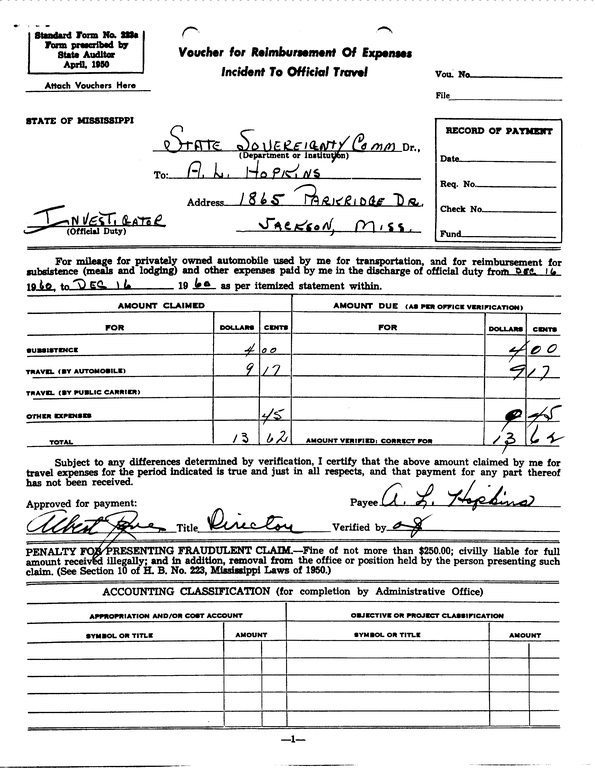 Standard Form No. 223a
Form prescribed by
State Auditor
April, 1950
Attach Vouchers Here
Voucher for Reimbursement Of Expenses
Incident To Official Travel
Vou. No.
File
STATE OF MISSISSIPPI
STATE SOVEREIGNTY COMM Dr.,
(Department or Institution)
To: A. L. HOPKINS
Address 1865 PARKRIDGE DR.
INVESTIGATOR JACKSON, MISS.
(Official Duty)
RECORD OF PAYMENT
Date
Req. No.
Check No.
Fund
For mileage for privately owned automobile used by me for transportation, and for reimbursement for
subsistence (meals and lodging) and other expenses paid by me in the discharge of official duty from DEC 16
1960, to DEC 16 1960 as per itemized statement within.
AMOUNT CLAIMED AMOUNT DUE (AS PER OFFICE VERIFICATION)
FOR DOLLARS CENTS FOR DOLLARS CENTS
SUBSISTENCE 4 00 4 00
TRAVEL (BY AUTOMOBILE) 9 17 9 17
TRAVEL (BY PUBLIC CARRIER)
OTHER EXPENSES 45 45
TOTAL 13 62 AMOUNT VERIFIED: CORRECT FOR 13 62
Subject to any differences determined by verification, I certify that the above amount claimed by me for
travel expenses for the period indicated is true and just in all respects, and that payment for any part thereof
has not been received.
Approved for payment: Payee A. L. Hopkins
Albert Title Director Verified by
PENALTY FOR PRESENTING FRAUDULENT CLAIM.—Fine of not more than $250.00; civilly liable for full
amount received illegally; and in addition, removal from the office or position held by the person presenting such
claim. (See Section 10 of H. B. No. 223, Mississippi Laws of 1950.)
ACCOUNTING CLASSIFICATION (for completion by Administrative Office)
APPROPRIATION AND/OR COST ACCOUNT OBJECTIVE OR PROJECT CLASSIFICATION
SYMBOL OR TITLE AMOUNT SYMBOL OR TITLE AMOUNT
—1—